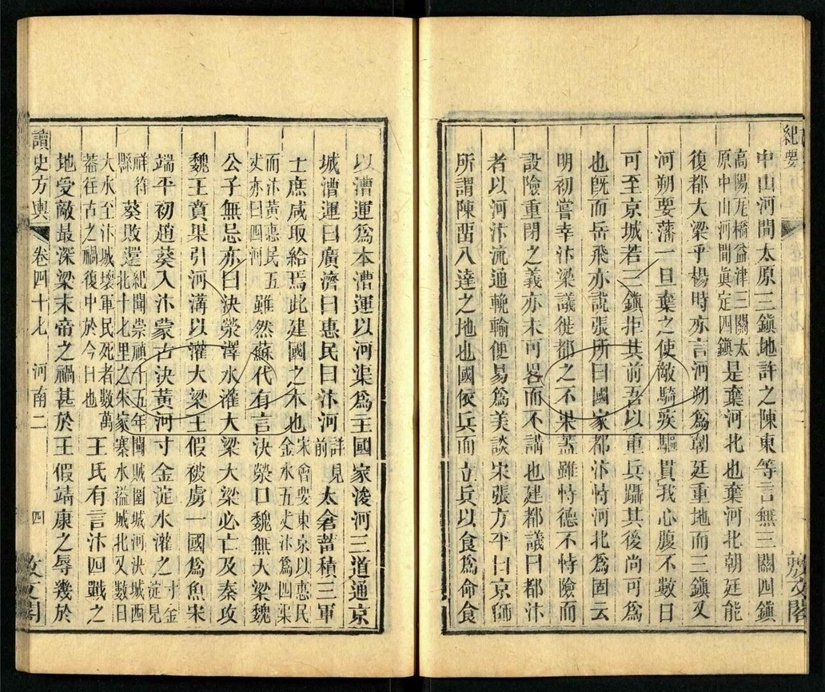 紀要
中山河間太原三鎭地許之陳東等言無三關四鎭
高陽瓦橋益津三關太
原中山河間眞定四鎭
是棄河北也棄河北朝廷能
復都大梁乎楊時亦言河朔爲朝廷重地而三鎭又
河朔要藩一旦棄之使敵騎疾驅貫我心腹不數日
可至京城若三鎭拒其前吾以重兵躡其後尚可爲
也旣而岳飛亦說張所曰國家都汴恃河北爲固云
明初嘗幸汴梁議徙都之不果蓋雖恃德不恃險而
設險重閉之義亦未可畧而不講也建都議曰都汴
者以河汴流通輓輸便易爲美談宋張方平曰京師
所謂陳留八達之地也國倚兵而立兵以食爲命食
敷文閣
以漕運爲本漕運以河渠爲主國家浚河三道通京
城漕運曰廣濟曰惠民曰汴河
詳見
前
太倉蓄積三軍
士庶咸取給焉此建國之本也
宋會要東京以惠民
金水五丈汴爲四渠
而汴黃惠民五
丈亦曰四河
雖然蘇代有言決滎口魏無大梁魏
公子無忌亦曰決滎澤水灌大梁大梁必亡及秦攻
魏王賁果引河溝以灌大梁王假被虜一國爲魚宋
端平初趙葵入汴蒙古決黃河寸金淀水灌之
寸金
淀見
祥符
縣
葵敗還
紀聞崇禎十五年闖賊圍城河決城西
北十七里之朱家寨水溢城北又數日
大水至汴城壞軍民死者數萬
蓋往古之禍復中於今日也
王氏有言汴四戰之
地受敵最深梁末帝之禍甚於王假靖康之辱幾於
讀史方輿
卷四十七
河南二
四
敷文閣